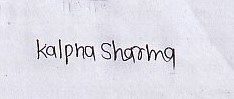 Kalpna Sharma